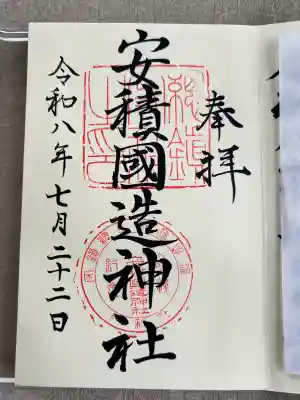 奉拝
安積國造神社
令和八年七月二十二日